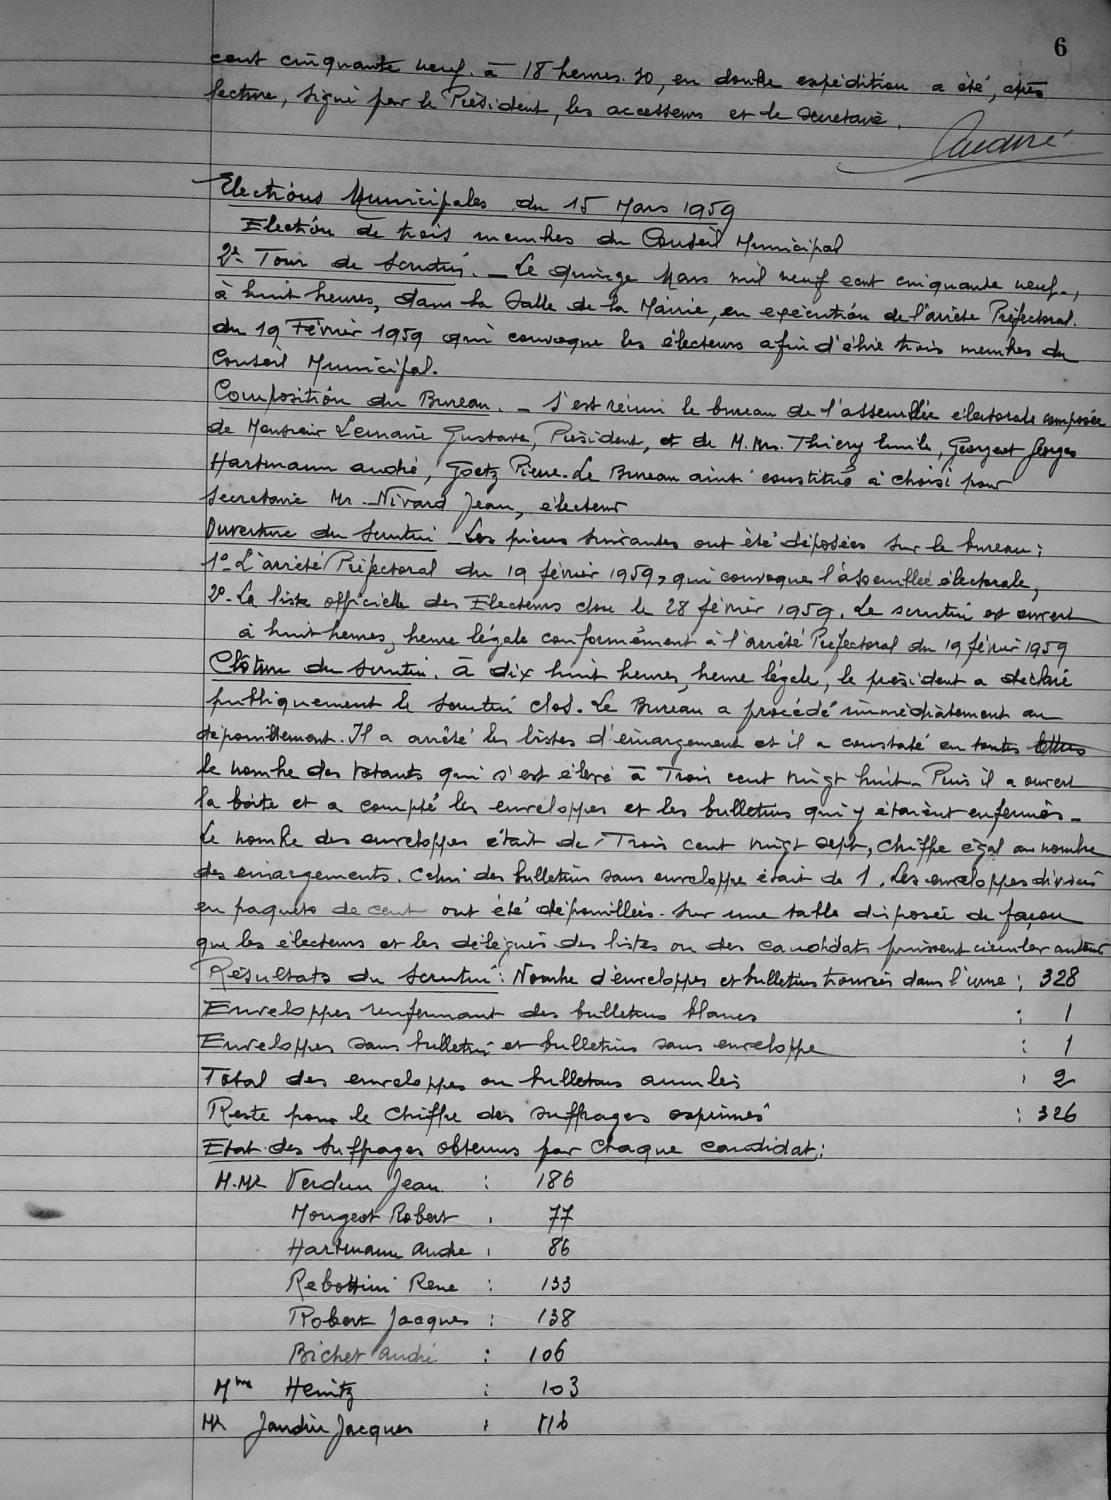 6
cent cinquante neuf. à 18 heures. 30, en double expédition a été, après
lecture, signé par le Président, les accesseurs et le secretaire.
Elections Municipales du 15 Mars 1959
Election de trois membres du Conseil Municipal
2e Tour de Scrutin. _ Le quinze Mars mil neuf cent cinquante neuf.,
à huit heures, dans la Salle de la Mairie, en exécution de l'arrêté Préfectoral.
du 19 Février 1959 qui convoque les électeurs afin d'élire trois membres du
Conseil Municipal.
Composition du Bureau. _ S'est réuni le bureau de l'assemblée électorale composée
de Monsieur Lemaire Gustave, Président, et de M.Mrs. Thiery Emile, Georgeot Georges
Hartmann André, Goetz Pierre. Le Bureau ainsi constitué a choisi pour
secretaire Mr. Nivard Jean, électeur
Ouverture du Scrutin _ Les pièces suivantes ont été déposées sur le bureau :
1° L'arrêté Préfectoral du 19 février 1959, qui convoque l'assemblée électorale,
2° La liste officielle des Electeurs close le 28 février 1959. Le scrutin est ouvert
à huit heures, heure légale conformément à l'arrêté Préfectoral du 19 février 1959
Clôture du scrutin. à dix huit heures, heure légale, le président a déclaré
publiquement le scrutin clos. Le Bureau a procédé immédiatement au
dépouillement. Il a arrêté les listes d'émargement et il a constaté en toutes lettres
le nombre des votants qui s'est élevé à Trois cent vingt huit _ Puis il a ouvert
la boite et a compté les enveloppes et les bulletins qui y étaient enfermés _
Le nombre des enveloppes était de Trois cent vingt sept, chiffre égal au nombre
des émargements. Celui des bulletins sans enveloppe était de 1. Les enveloppes divisées
en paquets de cent ont été dépouillées. Sur une table disposée de façon
que les électeurs et les délégués des listes ou des candidats puissent circuler autour
Résultats du Scrutin : Nombre d'enveloppes et bulletins trouvés dans l'urne : 328
Enveloppes renfermant des bulletins blancs : 1
Enveloppes sans bulletin et bulletins sans enveloppe : 1
Total des enveloppes ou bulletins annulés : 2
Reste pour le chiffre des suffrages exprimés : 326
Etat des Suffrages obtenus par chaque candidat :
M.Mr Verdun Jean : 186
Mougeot Robert : 77
Hartmann André : 86
Rebottini Rene : 133
Robert Jacques : 138
Bichet André : 106
Mme Heinitz : 103
Mr Jandin Jacques : 116